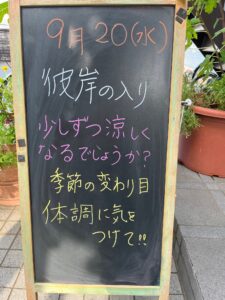 9月20(水)
彼岸の入り
少しずつ涼しく
なるでしょうか?
季節の変わり目
体調に気を
つけて!!